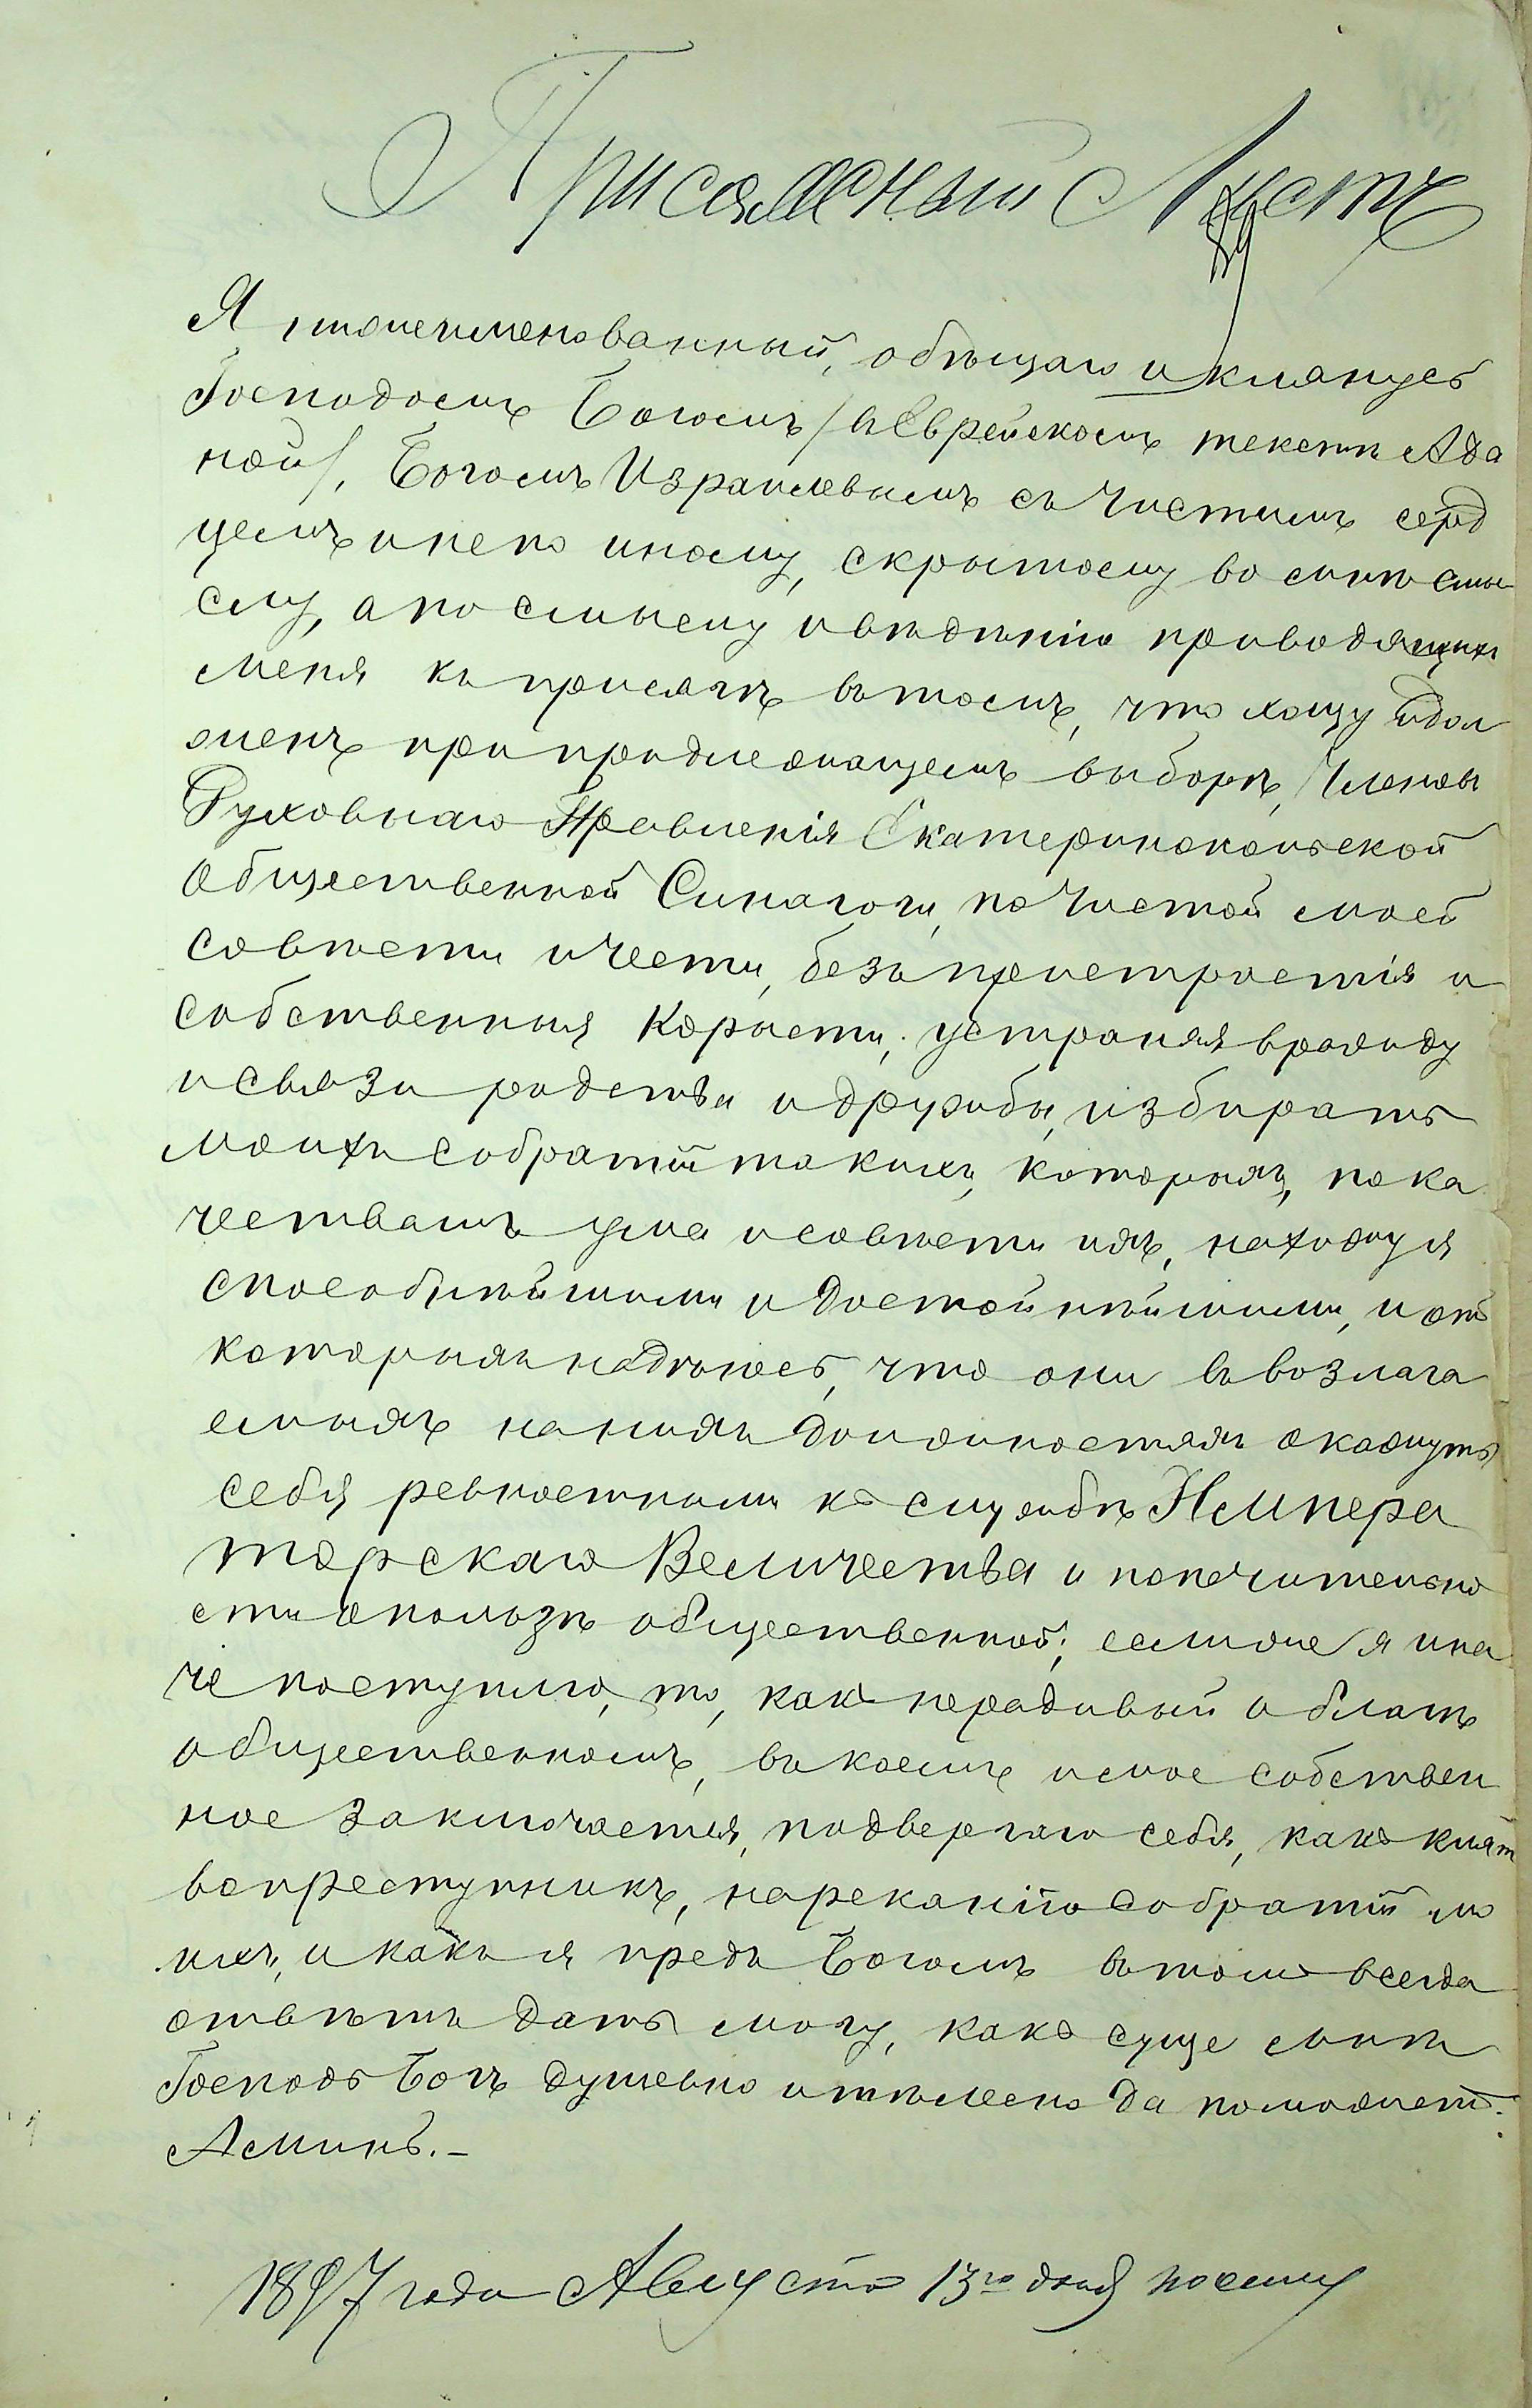 Присяжный Листъ
Я, нижепоименованный, обѣщаю и клянусь
Господомъ Богомъ /въ Еврейскомъ текстѣ Адо
ной/, Богомъ Израилевымъ съ чистымъ серд
цемъ и не по иному, скрытому во мнѣ смы
слу, а по смыслу и вѣдѣнію приводящихъ
меня къ присягѣ въ томъ, что хощу и дол
женъ при предлежащемъ выборѣ, Членовъ
Духовнаго Правленія Екатеринопольской
Общественной Синагоги, по чистой моей
совѣсти и чести, безъ пристрастія и
собственныя корысти, устраняя вражду
и связи родства и дружбы, избирать
моихъ собратій такихъ, которыхъ, по ка
чествамъ ума и совѣсти ихъ, нахожу я
способнѣйшими и достойнѣйшими, и отъ
которыхъ надѣюсь, что они въ возлага
емыхъ на нихъ должностяхъ окажутъ
себя ревностными къ службѣ Импера
торскаго Величества и попечительно
сти о пользѣ общественной; если же я ина
че поступлю, то, какъ нерадивый о благѣ
общественномъ, въ коемъ и мое собствен
ное заключается, подвергаю себя, какъ клят
вопреступникъ, нареканію собратій мо
ихъ, и какъ я предъ Богомъ въ томъ всегда
отвѣтъ дать могу, какъ суще мнѣ
Господь Богъ душевно и тѣлесно да поможетъ.
Аминь.–
1897 года Августа 13го дня по сему